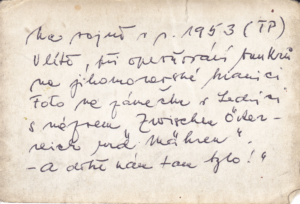 Na vojně v r. 1953 (TP)
V létě, při opevňování bunkrů
na jihomoravské hranici
Foto na zámečku v Lednici
s nápisem "Zwischen Öster-
reich und Mähren".
- A dobře nám tam bylo!"